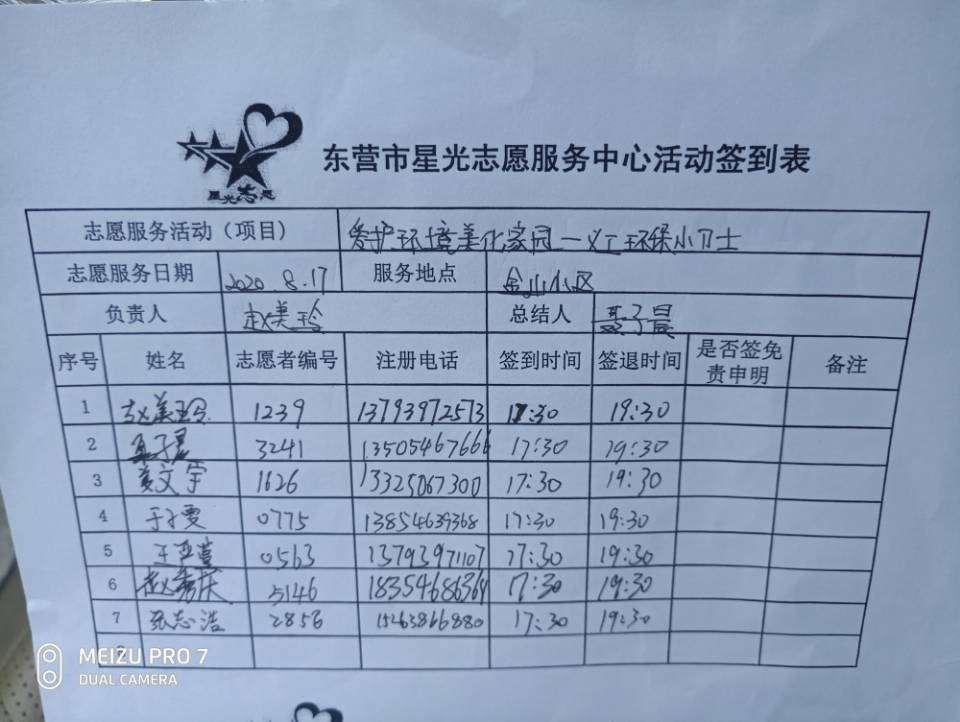 星光志愿
东营市星光志愿服务中心活动签到表
志愿服务活动（项目） 爱护环境美化家园—义工环保小卫士
志愿服务日期 2020.8.17 服务地点 金山小区
负责人 赵美玲 总结人 聂子晨
序号 姓名 志愿者编号 注册电话 签到时间 签退时间 是否签免责申明 备注
1 赵美玲 1239 13793972573 17:30 19:30
2 3241 13505467666 17:30 19:30
3 姜文宇 1626 13325067300 17:30 19:30
4 于子雯 0775 13854639368 17:30 19:30
5 王亚萱 0563 13793971107 17:30 19:30
6 赵秀庆 5146 18354686364 17:30 19:30
7 张志浩 2856 15263866880 17:30 19:30
MEIZU PRO 7
DUAL CAMERA